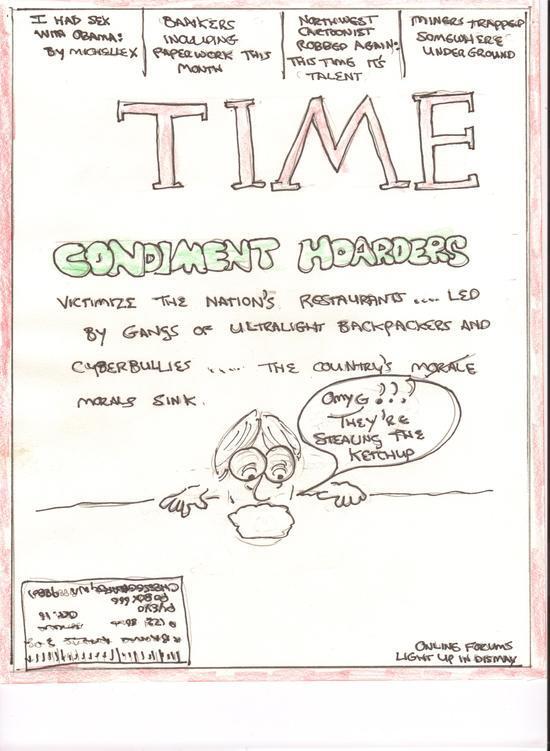 I HAD SEX
WITH OBAMA:
BY MICHELLE X
BANKERS
INCLUDING
PAPERWORK THIS
MONTH
NORTHWEST
CARTOONIST
ROBBED AGAIN:
THIS TIME IT'S
TALENT
MINERS TRAPPED
SOMEWHERE
UNDERGROUND
TIME
CONDIMENT HOARDERS
VICTIMIZE THE NATION'S RESTAURANTS .... LED
BY GANGS OF ULTRALIGHT BACKPACKERS AND
CYBERBULLIES ..... THE COUNTRY'S MORALE
MORALS SINK.
OMYG ???
THEY'RE
STEALING THE
KETCHUP
PO BOX 666
ONLINE FORUMS
LIGHT UP IN DISMAY